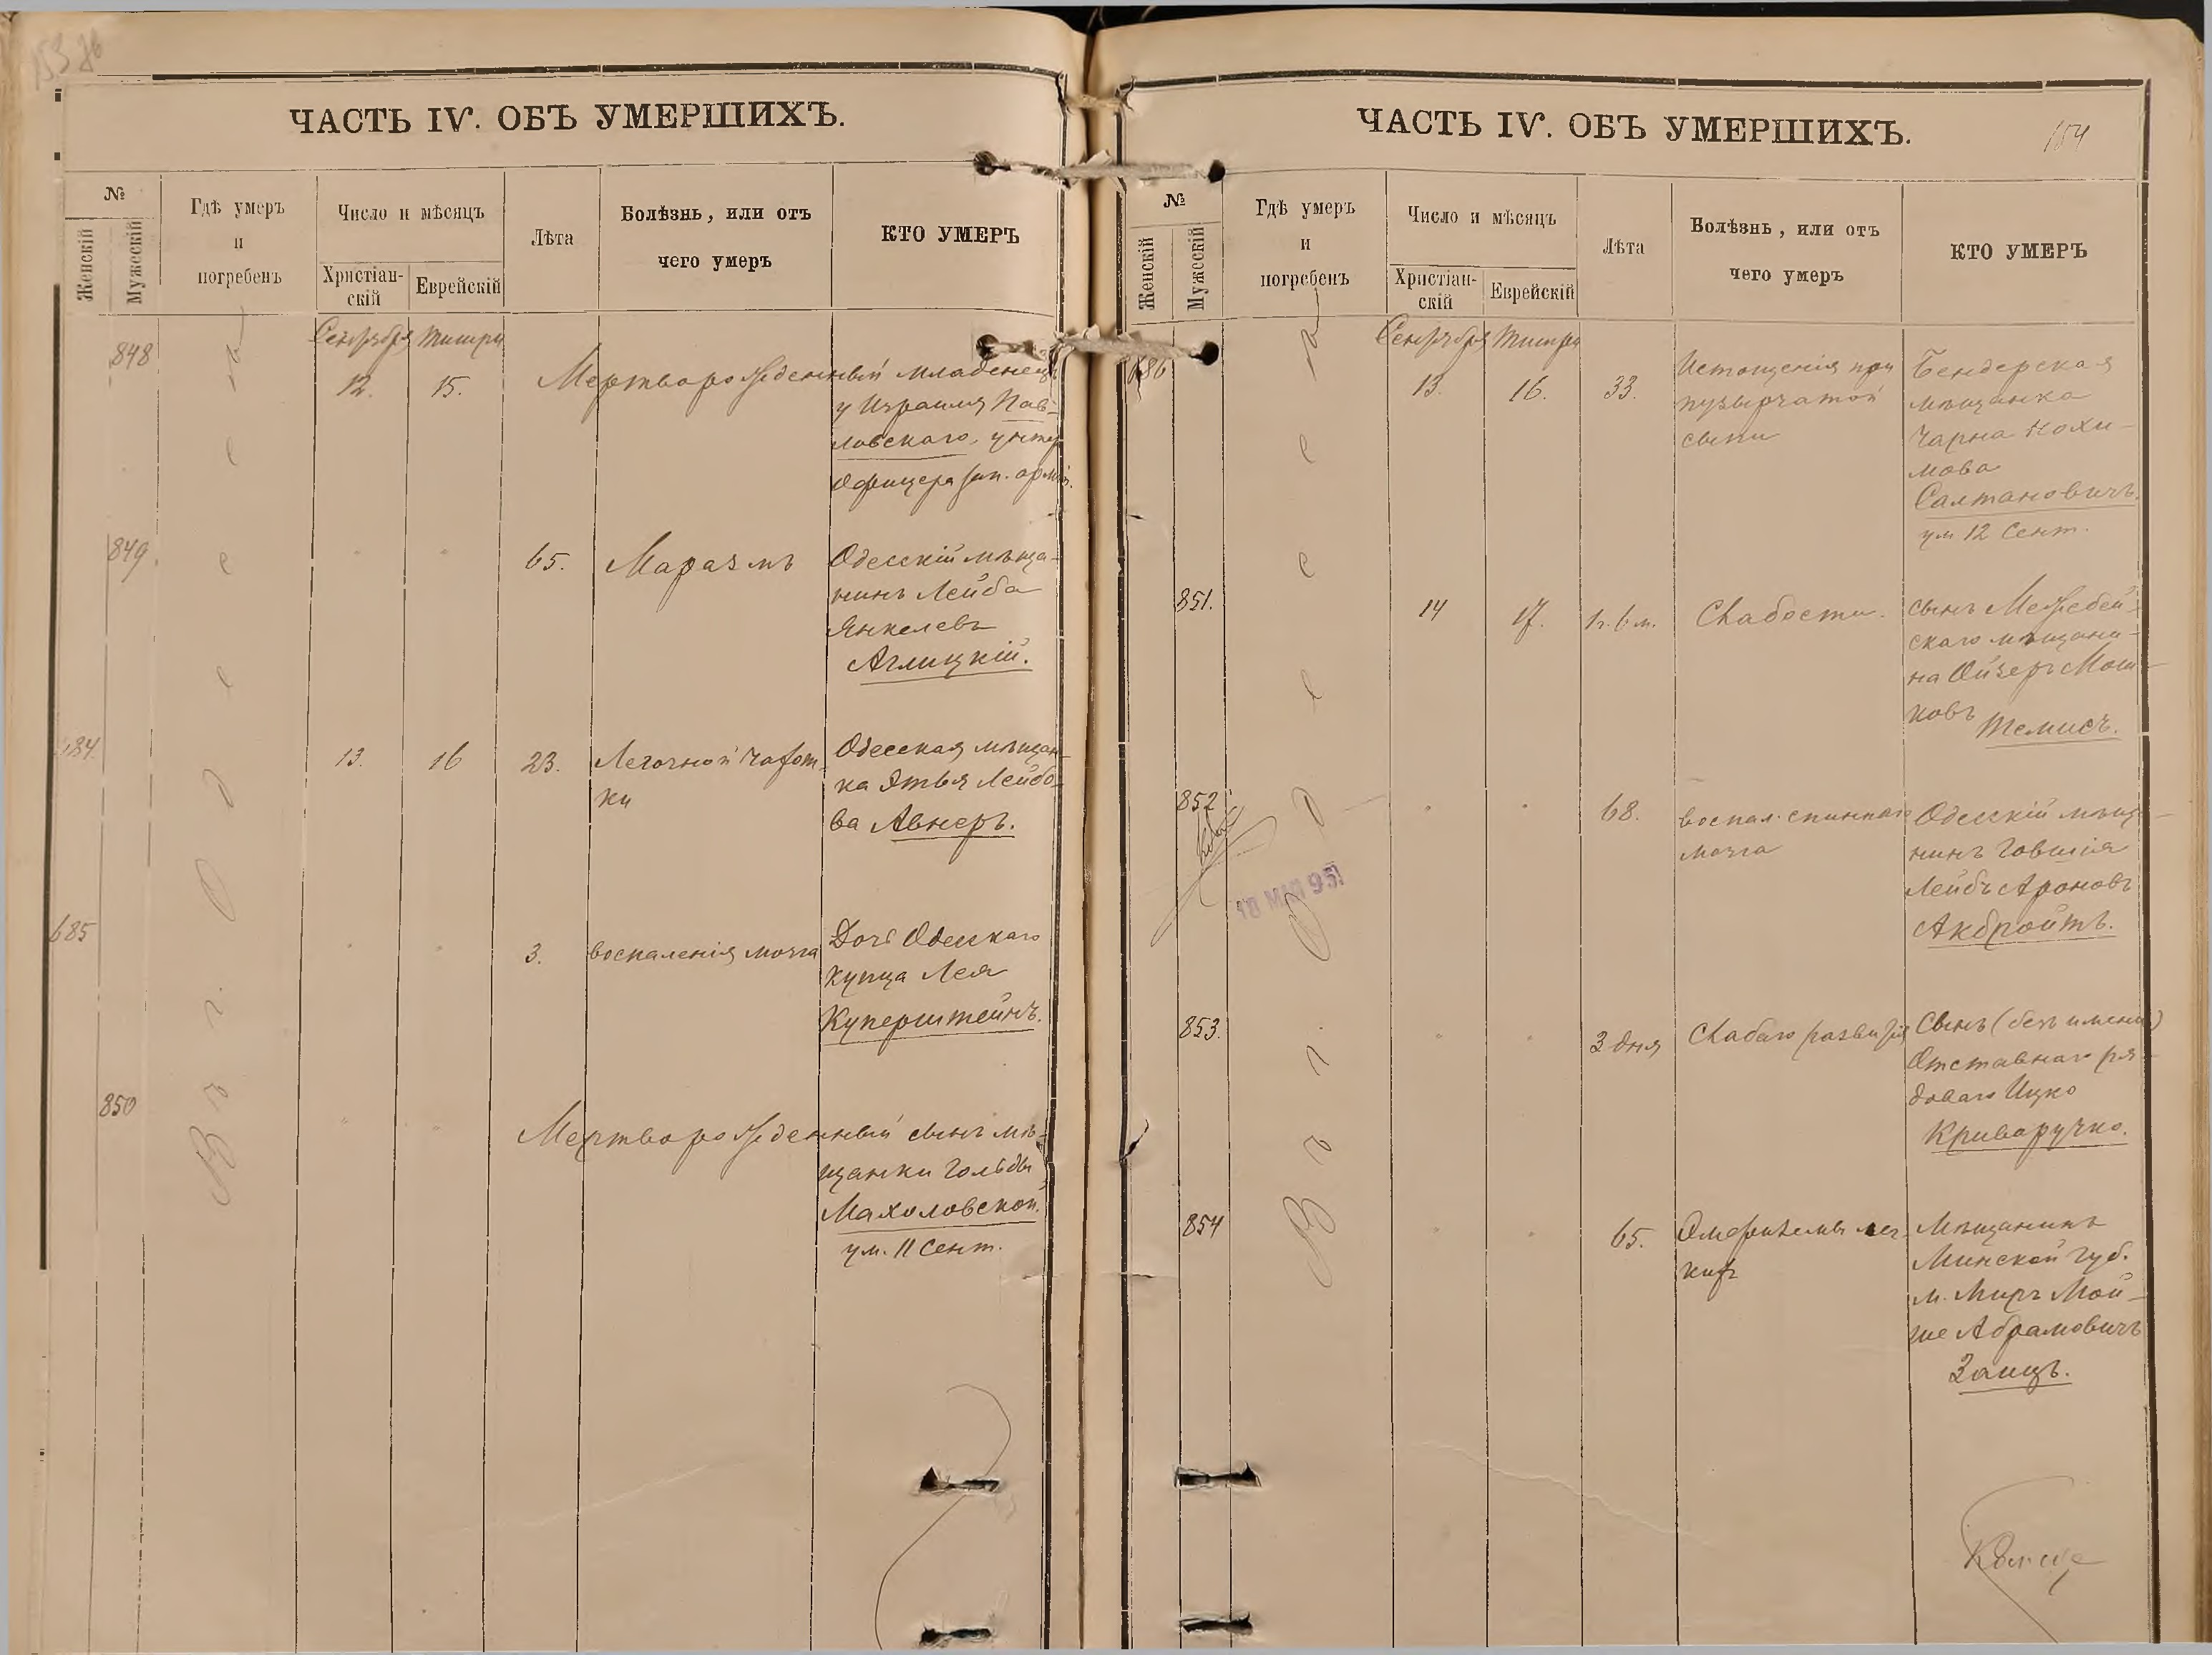 ЧАСТЬ IV. ОБЪ УМЕРШИХЪ.
№
Женскій
Мужескій
Гдѣ умеръ
и
погребенъ
Число и мѣсяцъ
Христіан-
скій
Еврейскій
Лѣта
Болѣзнь, или отъ
чего умеръ
КТО УМЕРЪ
Въ г. Одессѣ
Сентября Тишри
848
12. 15.
Мертворожденный младенецъ
у Израиля Пав-
ловскаго, унтер
офицера зап. арміи.
849.
65.
Маразмъ
Одесскій мѣща-
нинъ Лейба
Янкелевъ
Аглицкій.
684.
13. 16 23.
Легочной чахот-
ки
Одесская мѣщан-
ка Этья Лейбо-
ва Авнеръ.
685
3.
воспаленія мозга
Дочь Одесскаго
купца Лея
Куперштейнъ.
850
Мертворожденный сынъ мѣ-
щанки Гольды
Махоловской.
ум. 11 Сент.
ЧАСТЬ IV. ОБЪ УМЕРШИХЪ.
154
№
Женскій
Мужескій
Гдѣ умеръ
и
погребенъ
Число и мѣсяцъ
Христіан-
скій
Еврейскій
Лѣта
Болѣзнь, или отъ
чего умеръ
КТО УМЕРЪ
Въ г. Одессѣ
Сентября Тишри
686
13. 16. 33.
Истощенія при
пузырчатой
сыпи
Бендерская
мѣщанка
Чарна Нохи-
мова
Салтановичъ.
ум 12 Сент.
851.
14 17. 1 г. 6 м.
Слабости.
сынъ Межебей-
скаго мѣщани-
на Ойзеръ Мош-
ковъ
Темисъ.
852
68.
воспал. спиннаго
мозга
Одесскій мѣща-
нинъ Говшія
Лейбъ Ароновъ
Акбройтъ.
853.
3 дня
Слабаго развитія
Сынъ (безъ имени)
Отставнаго ря-
доваго Ицко
Криворучко.
854
65.
Эмфиземы лег-
кихъ
Мѣщанинъ
Минской губ.
м. Миръ Мой-
ше Абрамовичъ
Заицъ.